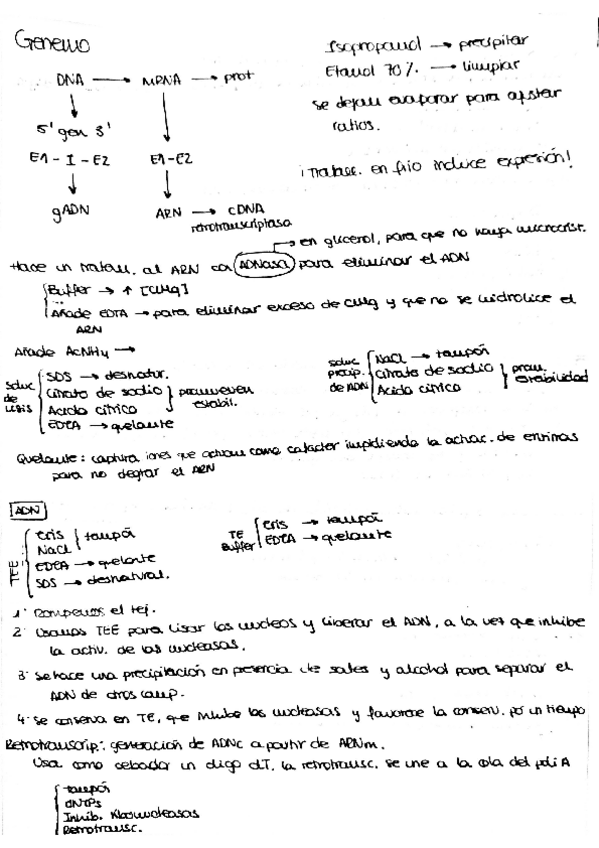 Genemo
DNA → mRNA → prot
5' gen 3'
E1 - I - E2
E1 - E2
gADN
ARN → cDNA
retrotranscriptasa
Isopropanol → precipitar
Etanol 70% → limpiar
Se dejan evaporar para ajustar
ratios.
¡Tratase. en frío induce expresión!
→ en glicerol, para que no haya microcrist.
Hace un tratam. al ARN con ADNasa para eliminar el ADN
Buffer → ↑ [ClMg]
Añade EDTA → para eliminar exceso de ClMg y que no se hidrolice el
ARN
Añade AcNH4 →
Soluc de lisis
SDS → desnatur.
Citrato de sodio
Acido cítrico
promueven estabil.
EDTA → quelante
soluc precip. de ADN
NaCl → tampón
Citrato de sodio
Acido cítrico
prom. estabilidad
Quelante: captura iones que actuan como cofactor impidiendo la activac. de enzimas
para no degrar el ARN
ADN
TEE
Tris
NaCl
tampón
EDTA → quelante
SDS → desnatural.
TE Buffer
Tris → tampón
EDTA → quelante
1· Rompemos el tej.
2· Usamos TEE para lisar los nucleos y liberar el ADN, a la vez que inhibe
la activ. de las nucleasas.
3· Se hace una precipitación en presencia de sales y alcohol para separar el
ADN de otros comp.
4· Se conserva en TE, que inhibe las nucleasas y favorece la conserv. por un tiempo
Retrotranscrip.: generación de ADNc a partir de ARNm.
Usa como cebador un oligo dT, la retrotransc. se une a la cola del poli A
tampón
dNTPs
Inhib. Ribonucleasas
Retrotransc.